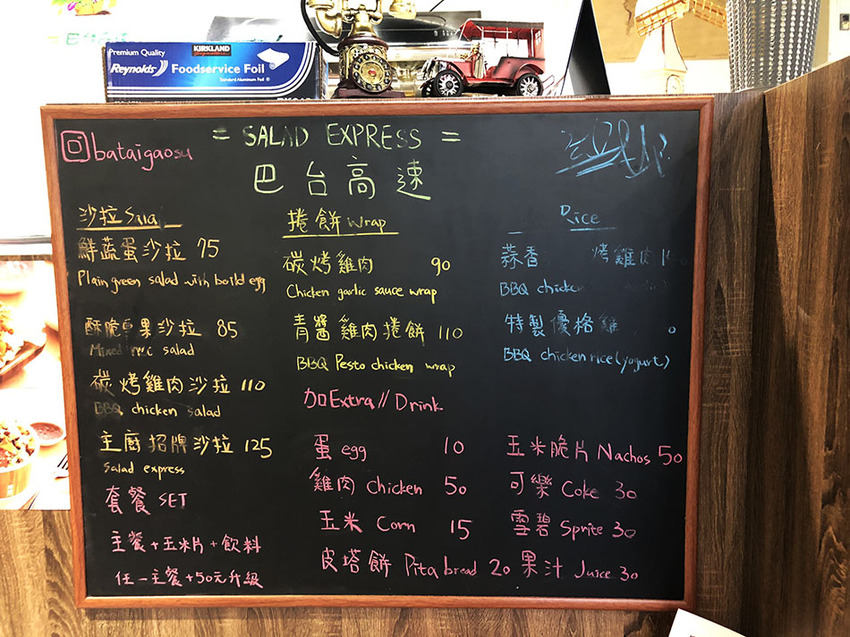 Premium Quality
KIRKLAND
Reynolds Foodservice Foil
Standard Aluminum Foil
bataigaosu
= SALAD EXPRESS =
巴台高速
沙拉
鮮蔬蛋沙拉 75
Plain green salad with boild egg
酥脆 果沙拉 85
salad
碳烤雞肉沙拉 110
BBQ chicken salad
主廚招牌沙拉 125
salad express
套餐 SET
主餐+玉米片+飲料
任一主餐+50元升級
捲餅 wrap
碳烤雞肉 90
Chicken garlic sauce wrap
青醬雞肉捲餅 110
BBQ Pesto chicken wrap
加Extra // Drink
蛋 egg 10
雞肉 chicken 50
玉米 Corn 15
皮塔餅 Pita bread 20
Rice
蒜香 烤雞肉
BBQ
特製優格雞
BBQ chicken rice (yogurt)
玉米脆片 Nachos 50
可樂 Coke 30
雪碧 Sprite 30
果汁 Juice 30